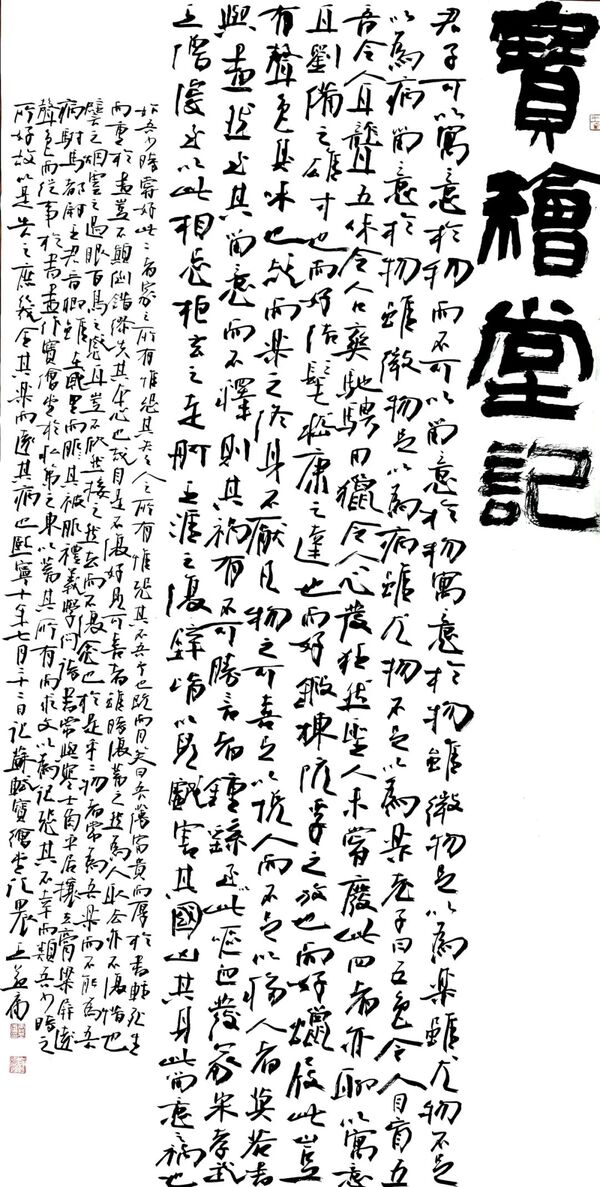 寶繪堂記
君子可以寓意於物而不可以留意於物寓意於物雖微物足以為樂雖尤物不足
以為病留意於物雖微物足以為病雖尤物不足以為樂老子曰五色令人目盲五
音令人耳聾五味令人口爽馳騁田獵令人心發狂然聖人未嘗廢此四者亦聊以寓意
耳劉備之雄才也而好結髦嵇康之達也而好鍛煉阮孚之放也而好蠟屐此豈
有聲色臭味也哉而樂之終身不厭凡物之可喜足以悅人而不足以移人者莫若書
與畫然至其留意而不釋則其禍有不可勝言者鍾繇至此嘔血發冢宋孝武
王僧虔至以此相忌桓玄之走舸王涯之復壁皆以兒戲害其國凶其身此留意之禍也
始吾少時嘗好此二者家之所有惟恐其失之人之所有惟恐其不吾予也既而自笑曰吾薄富貴而厚於書輕死生
而重於畫豈不顛倒錯繆失其本心也哉自是不復好見可喜者雖時復蓄之然為人取去亦不復惜也
譬之烟雲之過眼百鳥之感耳豈不欣然接之然去而不復念也於是乎二物者常為吾樂而不能為吾
病駙馬都尉王君晉卿雖在戚里而其被服禮義學問詩書常與寒士角平居攘去膏粱屏遠
聲色而從事於書畫作寶繪堂於私第之東以蓄其所有而求文以為記恐其不幸而類吾少時之
所好故以是告之庶幾全其樂而遠其病也熙寧十年七月二十二日記蘇軾寶繪堂記